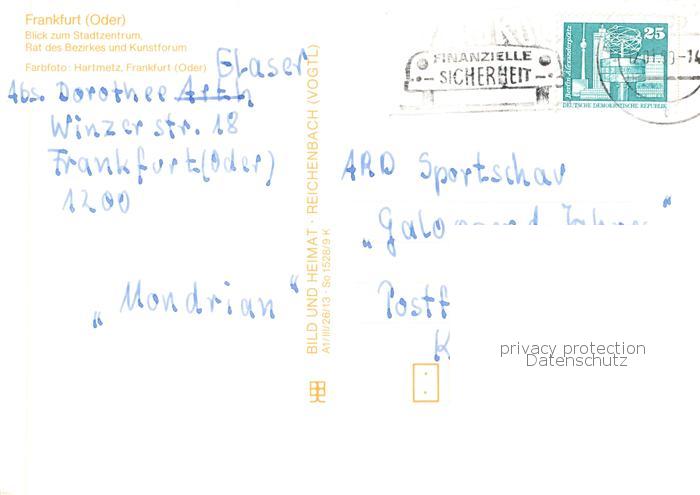 Frankfurt (Oder)
Blick zum Stadtzentrum,
Rat des Bezirkes und Kunstforum
Farbfoto: Hartmetz, Frankfurt (Oder)
Glaser
Abs. Dorothee
Winzerstr. 18
Frankfurt (Oder)
1200
„Mondrian“
BILD UND HEIMAT · REICHENBACH (VOGTL)
A1/III/26/13 · So 1528/9 K
FINANZIELLE
SICHERHEIT
25
Berlin, Alexanderplatz
DEUTSCHE DEMOKRATISCHE REPUBLIK
ARD Sportschau
Postf
K
privacy protection
Datenschutz